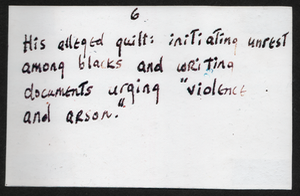 6
His alleged guilt: initiating unrest
among blacks and writing
documents urging "violence
and arson."